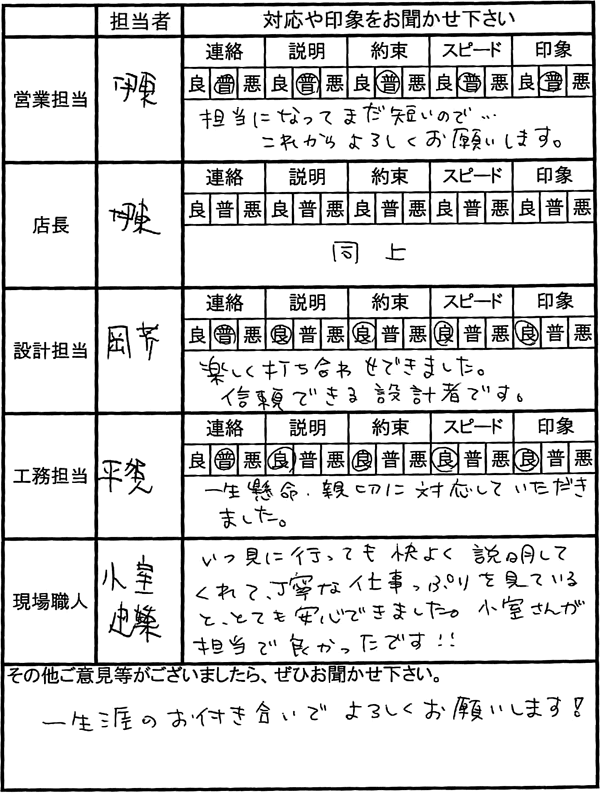 担当者 対応や印象をお聞かせ下さい
営業担当 伊東
連絡 説明 約束 スピード 印象
良 普 悪 良 普 悪 良 普 悪 良 普 悪 良 普 悪
担当になってまだ短いので…
これからよろしくお願いします。
店長
連絡 説明 約束 スピード 印象
良 普 悪 良 普 悪 良 普 悪 良 普 悪 良 普 悪
同上
設計担当
連絡 説明 約束 スピード 印象
良 普 悪 良 普 悪 良 普 悪 良 普 悪 良 普 悪
楽しく打ち合わせできました。
信頼できる設計者です。
工務担当 平賀
連絡 説明 約束 スピード 印象
良 普 悪 良 普 悪 良 普 悪 良 普 悪 良 普 悪
一生懸命、親切に対応していただき
ました。
現場職人 小室建築
いつ見に行っても快よく説明して
くれて、丁寧な仕事っぷりを見ている
と、とても安心できました。小室さんが
担当で良かったです!!
その他ご意見等がございましたら、ぜひお聞かせ下さい。
一生涯のお付き合いでよろしくお願いします!